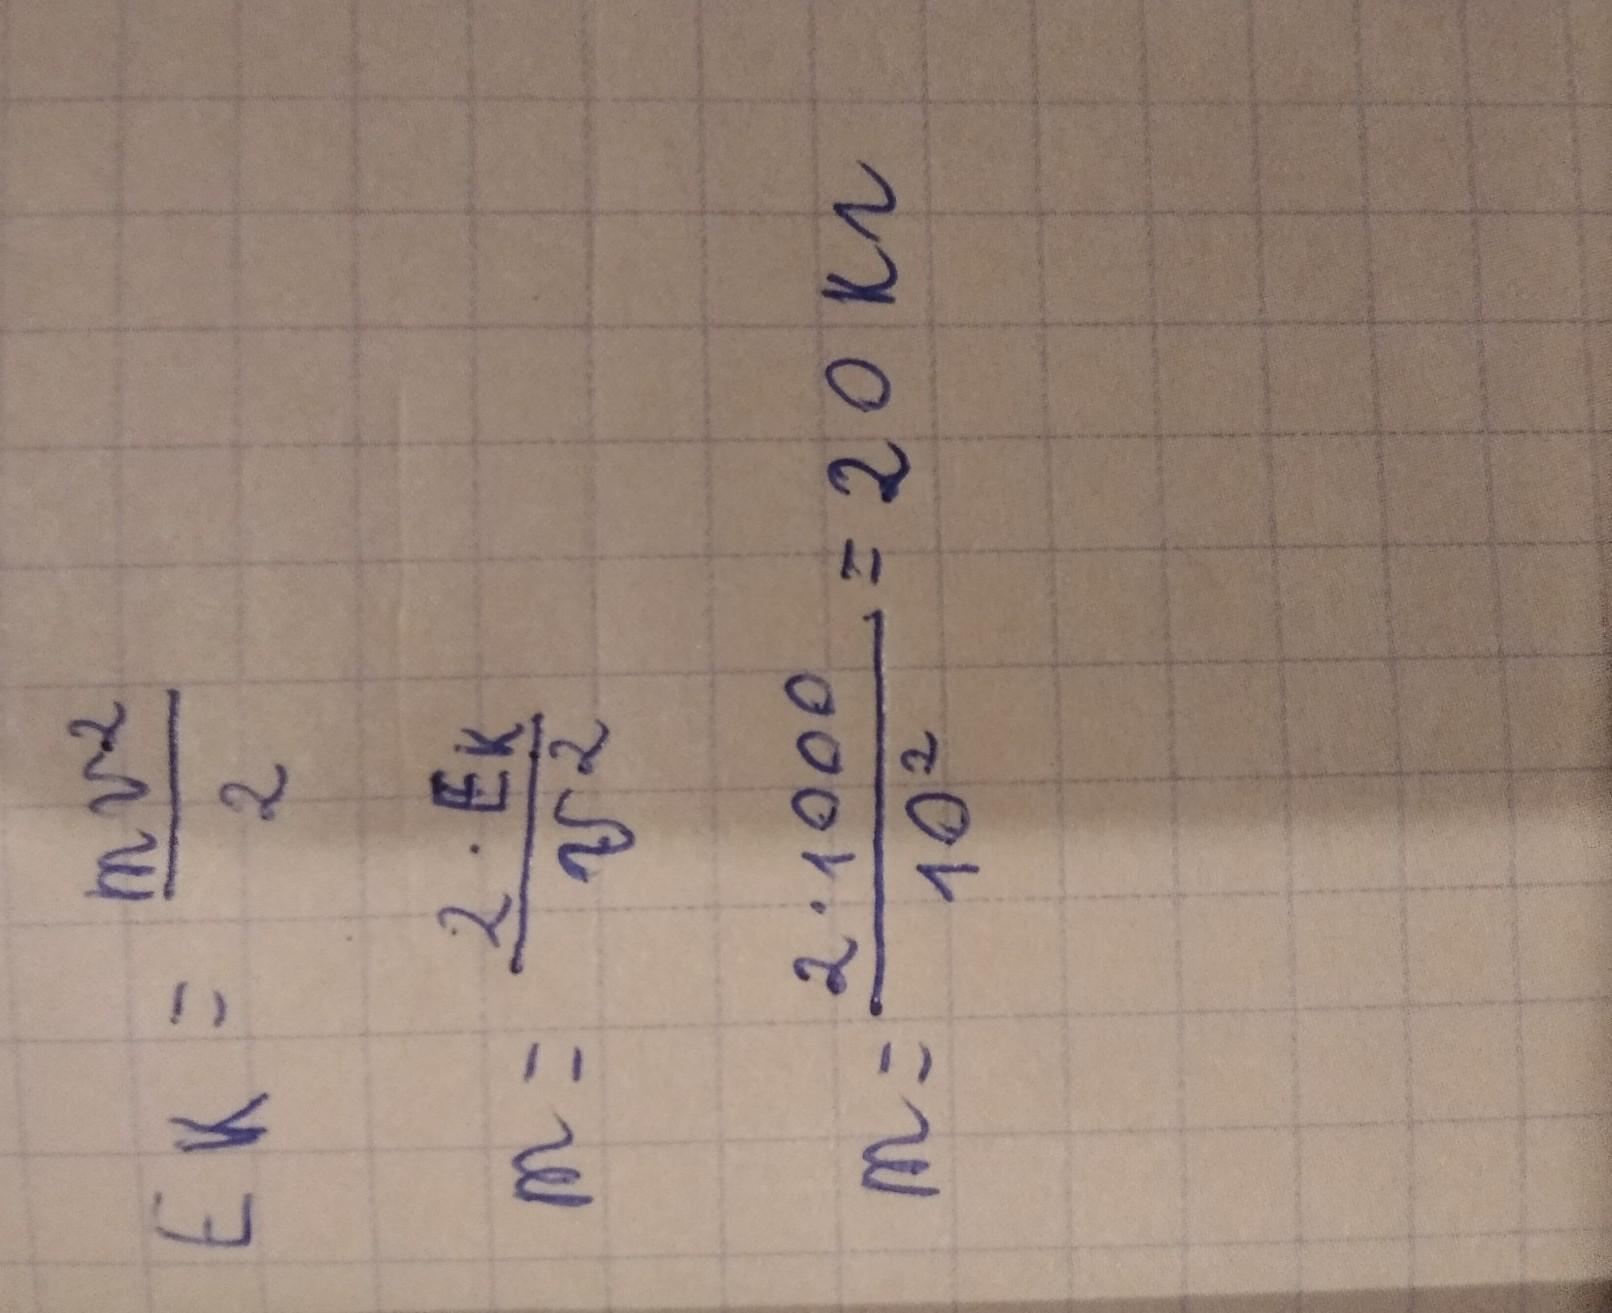 Eк = mv²/2
m = 2·Eк/v²
m = 2·1000/10² = 20 кг